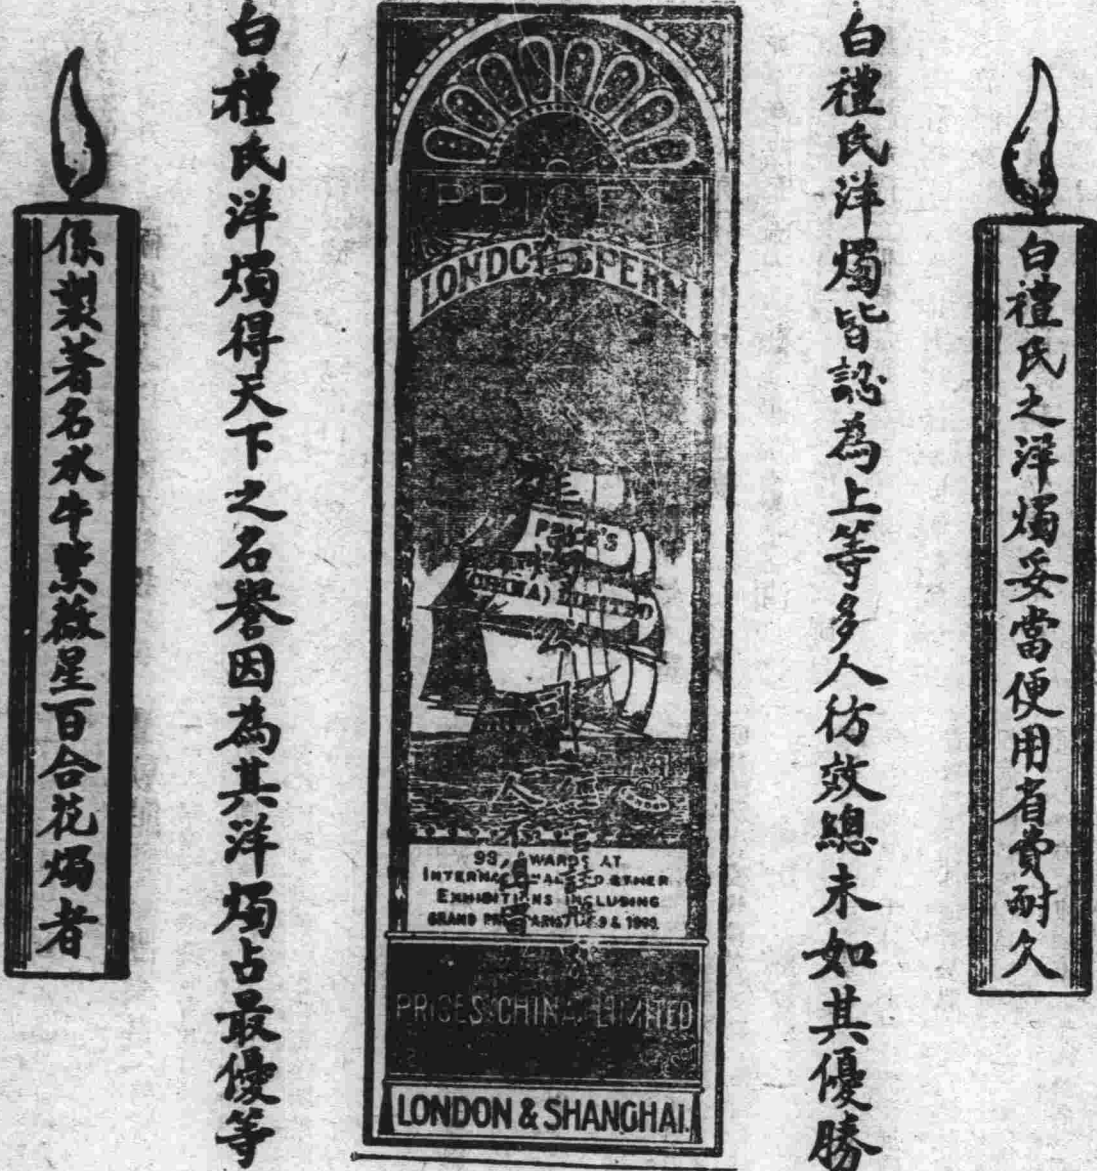 白禮氏之洋燭妥當便用省費耐久
白禮氏洋燭皆認為上等多人彷效總未如其優勝
PRICE'S
LONDON SPERM
PRICE'S
(CHINA) LIMITED
93 AWARDS AT
INTERNATIONAL AND OTHER
EXHIBITIONS INCLUDING
GRAND PRIX PARIS
& 1900.
PRICES CHINA LIMITED
LONDON & SHANGHAI.
白禮氏洋燭得天下之名譽因為其洋燭占最優等
係製著名水牛紫薇星百合花燭者